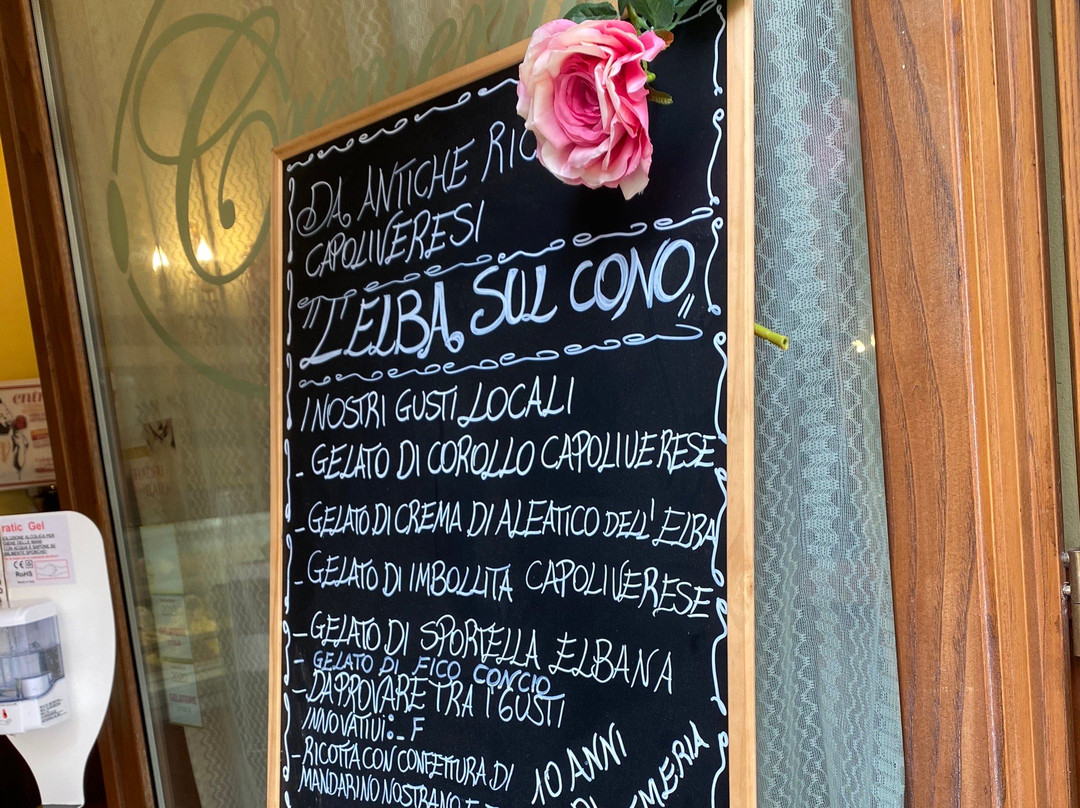 DA ANTICHE
CAPOLIVERESI
"L'ELBA SUL CONO"
I NOSTRI GUSTI LOCALI
- GELATO DI COROLLO CAPOLIVERESE
- GELATO DI CREMA DI ALEATICO DELL'ELBA
- GELATO DI IMBOLLITA CAPOLIVERESE
- GELATO DI SPORTELLA ELBANA
- GELATO DI FICO CONCIO
- DA PROVARE TRA I GUSTI
INNOVATIVI:- F
- RICOTTA CON CONFETTURA DI
MANDARINO NOSTRANO E
10 ANNI
DI
ratic Gel
RoHS